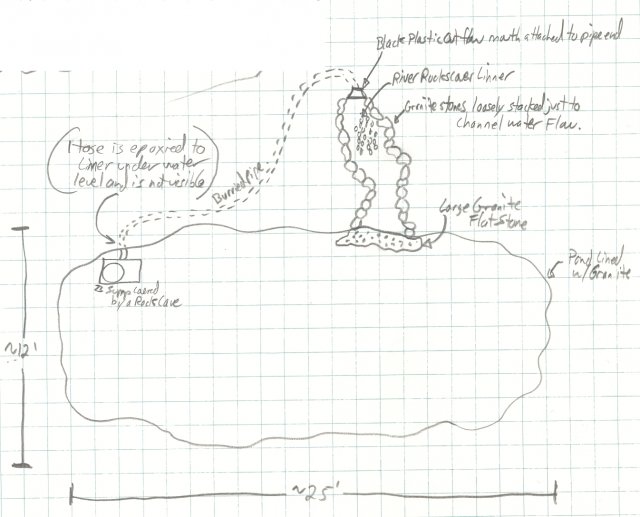 Black Plastic Out flow mouth attached to pipe end
River Rocks cover Linner
Granite stones loosely stacked just to
channel water Flow.
(Hose is epoxied to
Liner under water
level and is not visible)
Burried Pipe
Large Granite
Flat Stone
Pond Lined
w/ Granite
Sump covered
by a Rock Cave
~12'
~25'